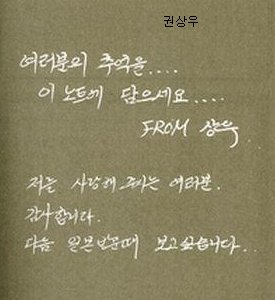 권상우
여러분의 추억을....
이 노트에 담으세요....
FROM 상우
저를 사랑해 주시는 여러분.
감사합니다.
다음 일본방문때 보고싶습니다...